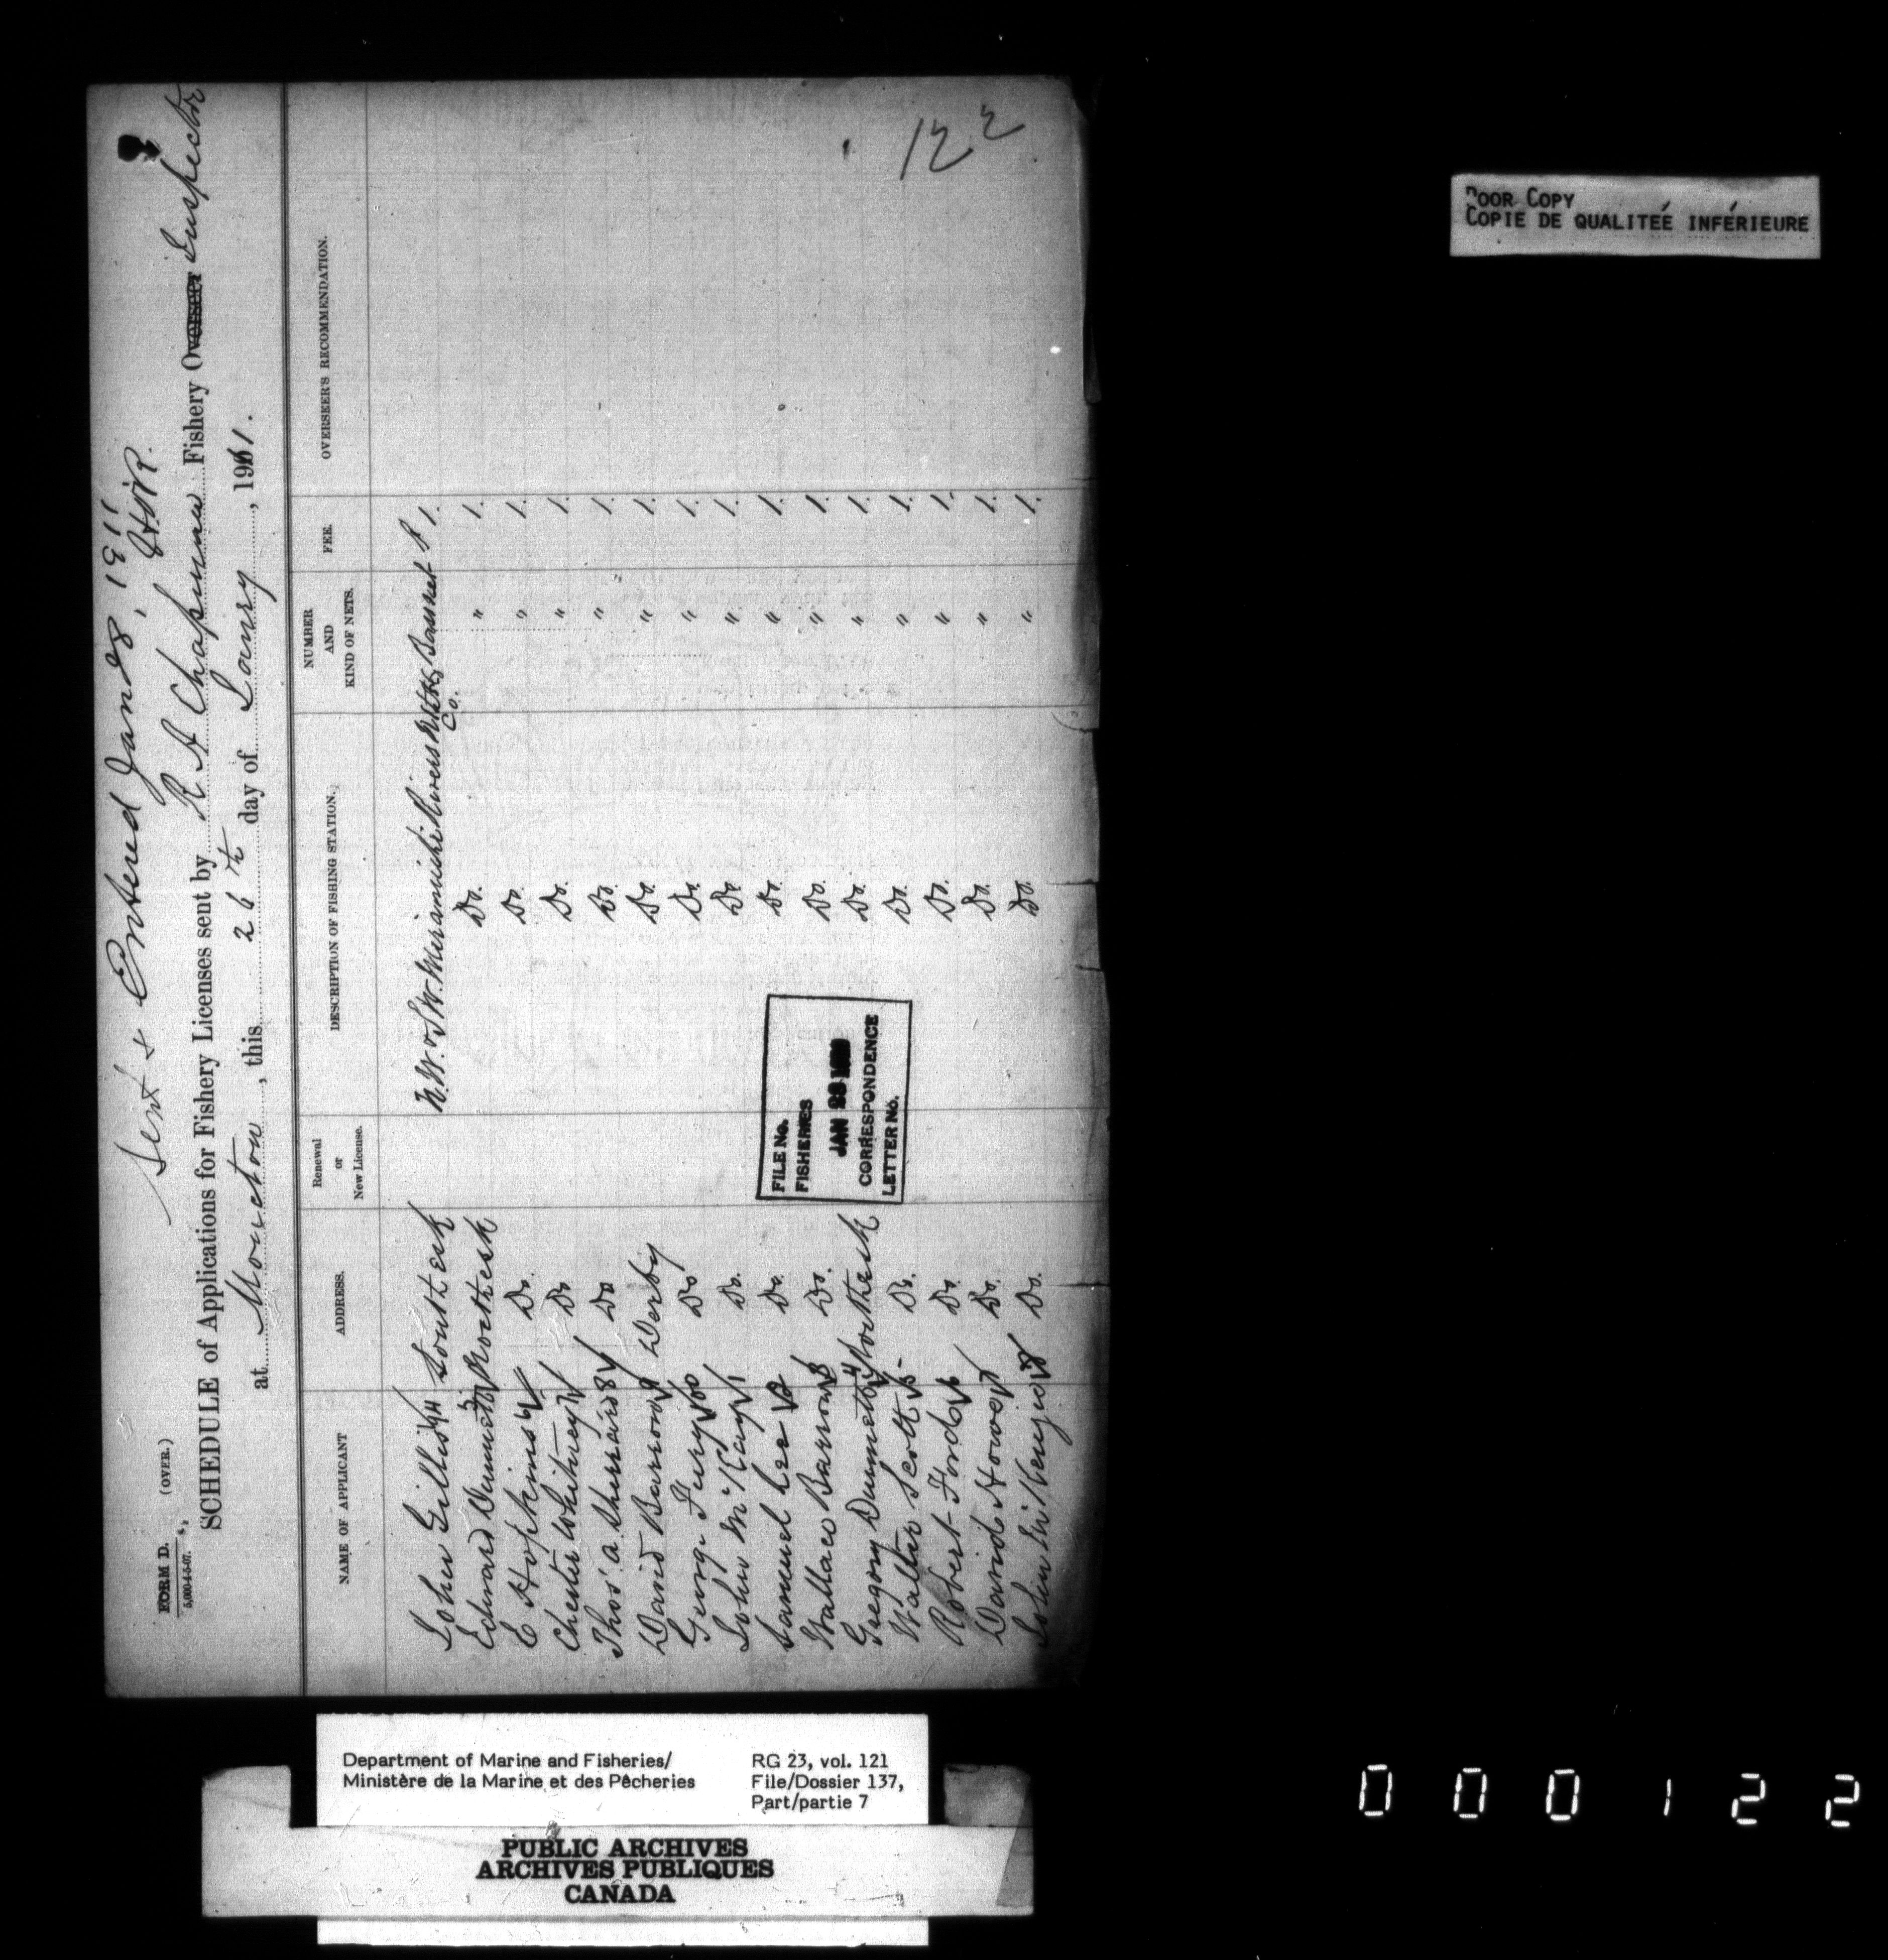 Sent & Entered Jan 28, 1911
FORM D. (OVER.)
5,000-4-5-07.
SCHEDULE of Applications for Fishery Licenses sent by R A Chapman Fishery Overseer Inspector
at Moncton, this 26th day of Jany, 1911.
NAME OF APPLICANT ADDRESS. Renewal or New License. DESCRIPTION OF FISHING STATION. NUMBER AND KIND OF NETS. FEE. OVERSEER'S RECOMMENDATION.
John Gillis Southesk N.W. & S.W. Miramichi Rivers Co. 1.
Edward Dunnett Northesk Do. " 1.
E Hopkins Do. Do. " 1.
Chester Whitney Do Do. " 1.
Thos. A. Sherrard Do Do. " 1.
David Barron Derby Do. " 1.
George Furry Do Do. " 1.
John McKay Do. Do. " 1.
Samuel Lee Do. Do. " 1.
Wallace Barron Do. Do. " 1.
Gregory Dunnett Northesk Do. " 1.
Walter Scott Do. Do. " 1.
Robert Ford Do. Do. " 1.
David Howe Do. Do. " 1.
John Do. Do. " 1.
FILE No.
FISHERIES
JAN
CORRESPONDENCE
LETTER No.
122
POOR COPY
COPIE DE QUALITEÉ INFÉRIEURE
Department of Marine and Fisheries/
Ministère de la Marine et des Pêcheries
RG 23, vol. 121
File/Dossier 137,
Part/partie 7
PUBLIC ARCHIVES
ARCHIVES PUBLIQUES
CANADA
000122